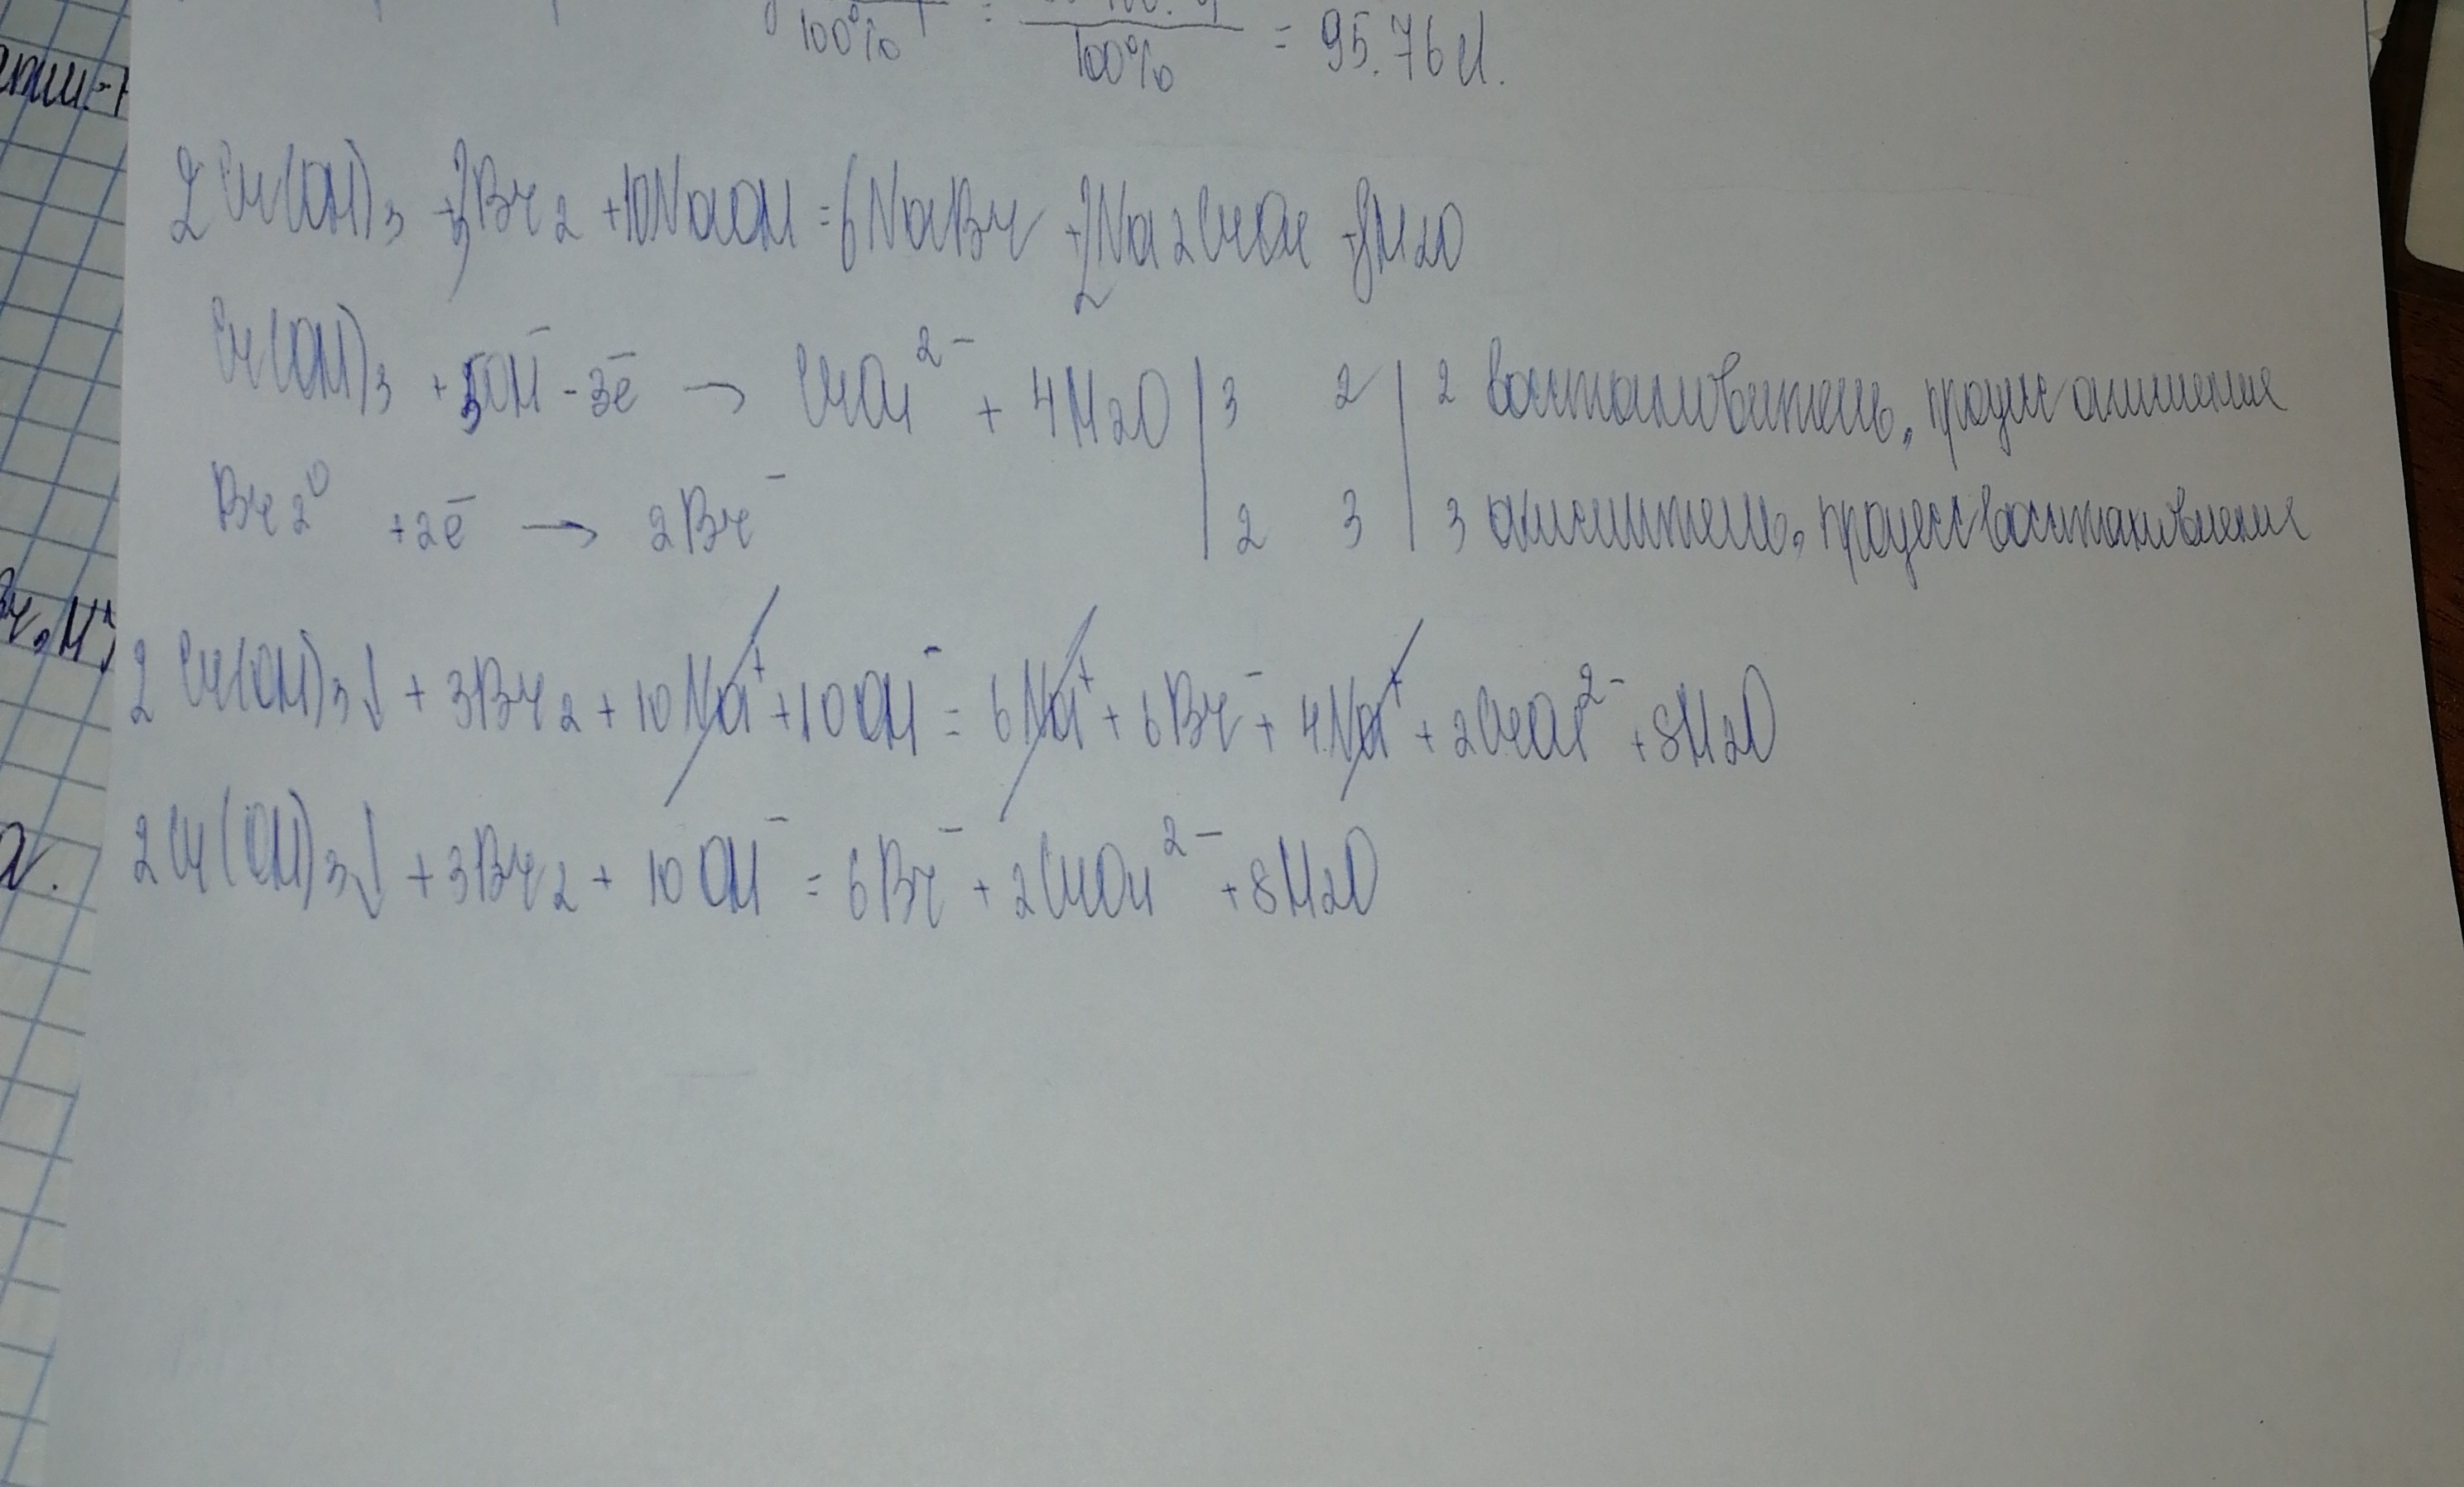 100% = 100% = 95.76 г.
2Cr(OH)3 + 3Br2 + 10NaOH = 6NaBr + 2Na2CrO4 + 8H2O
Cr(OH)3 + 5OH⁻ - 3e⁻ → CrO4²⁻ + 4H2O | 3 2 | 2 восстановитель, процесс окисления
Br2⁰ + 2e⁻ → 2Br⁻ | 2 3 | 3 окислитель, процесс восстановления
2Cr(OH)3↓ + 3Br2 + 10Na⁺ + 10OH⁻ = 6Na⁺ + 6Br⁻ + 4Na⁺ + 2CrO4²⁻ + 8H2O
2Cr(OH)3↓ + 3Br2 + 10OH⁻ = 6Br⁻ + 2CrO4²⁻ + 8H2O